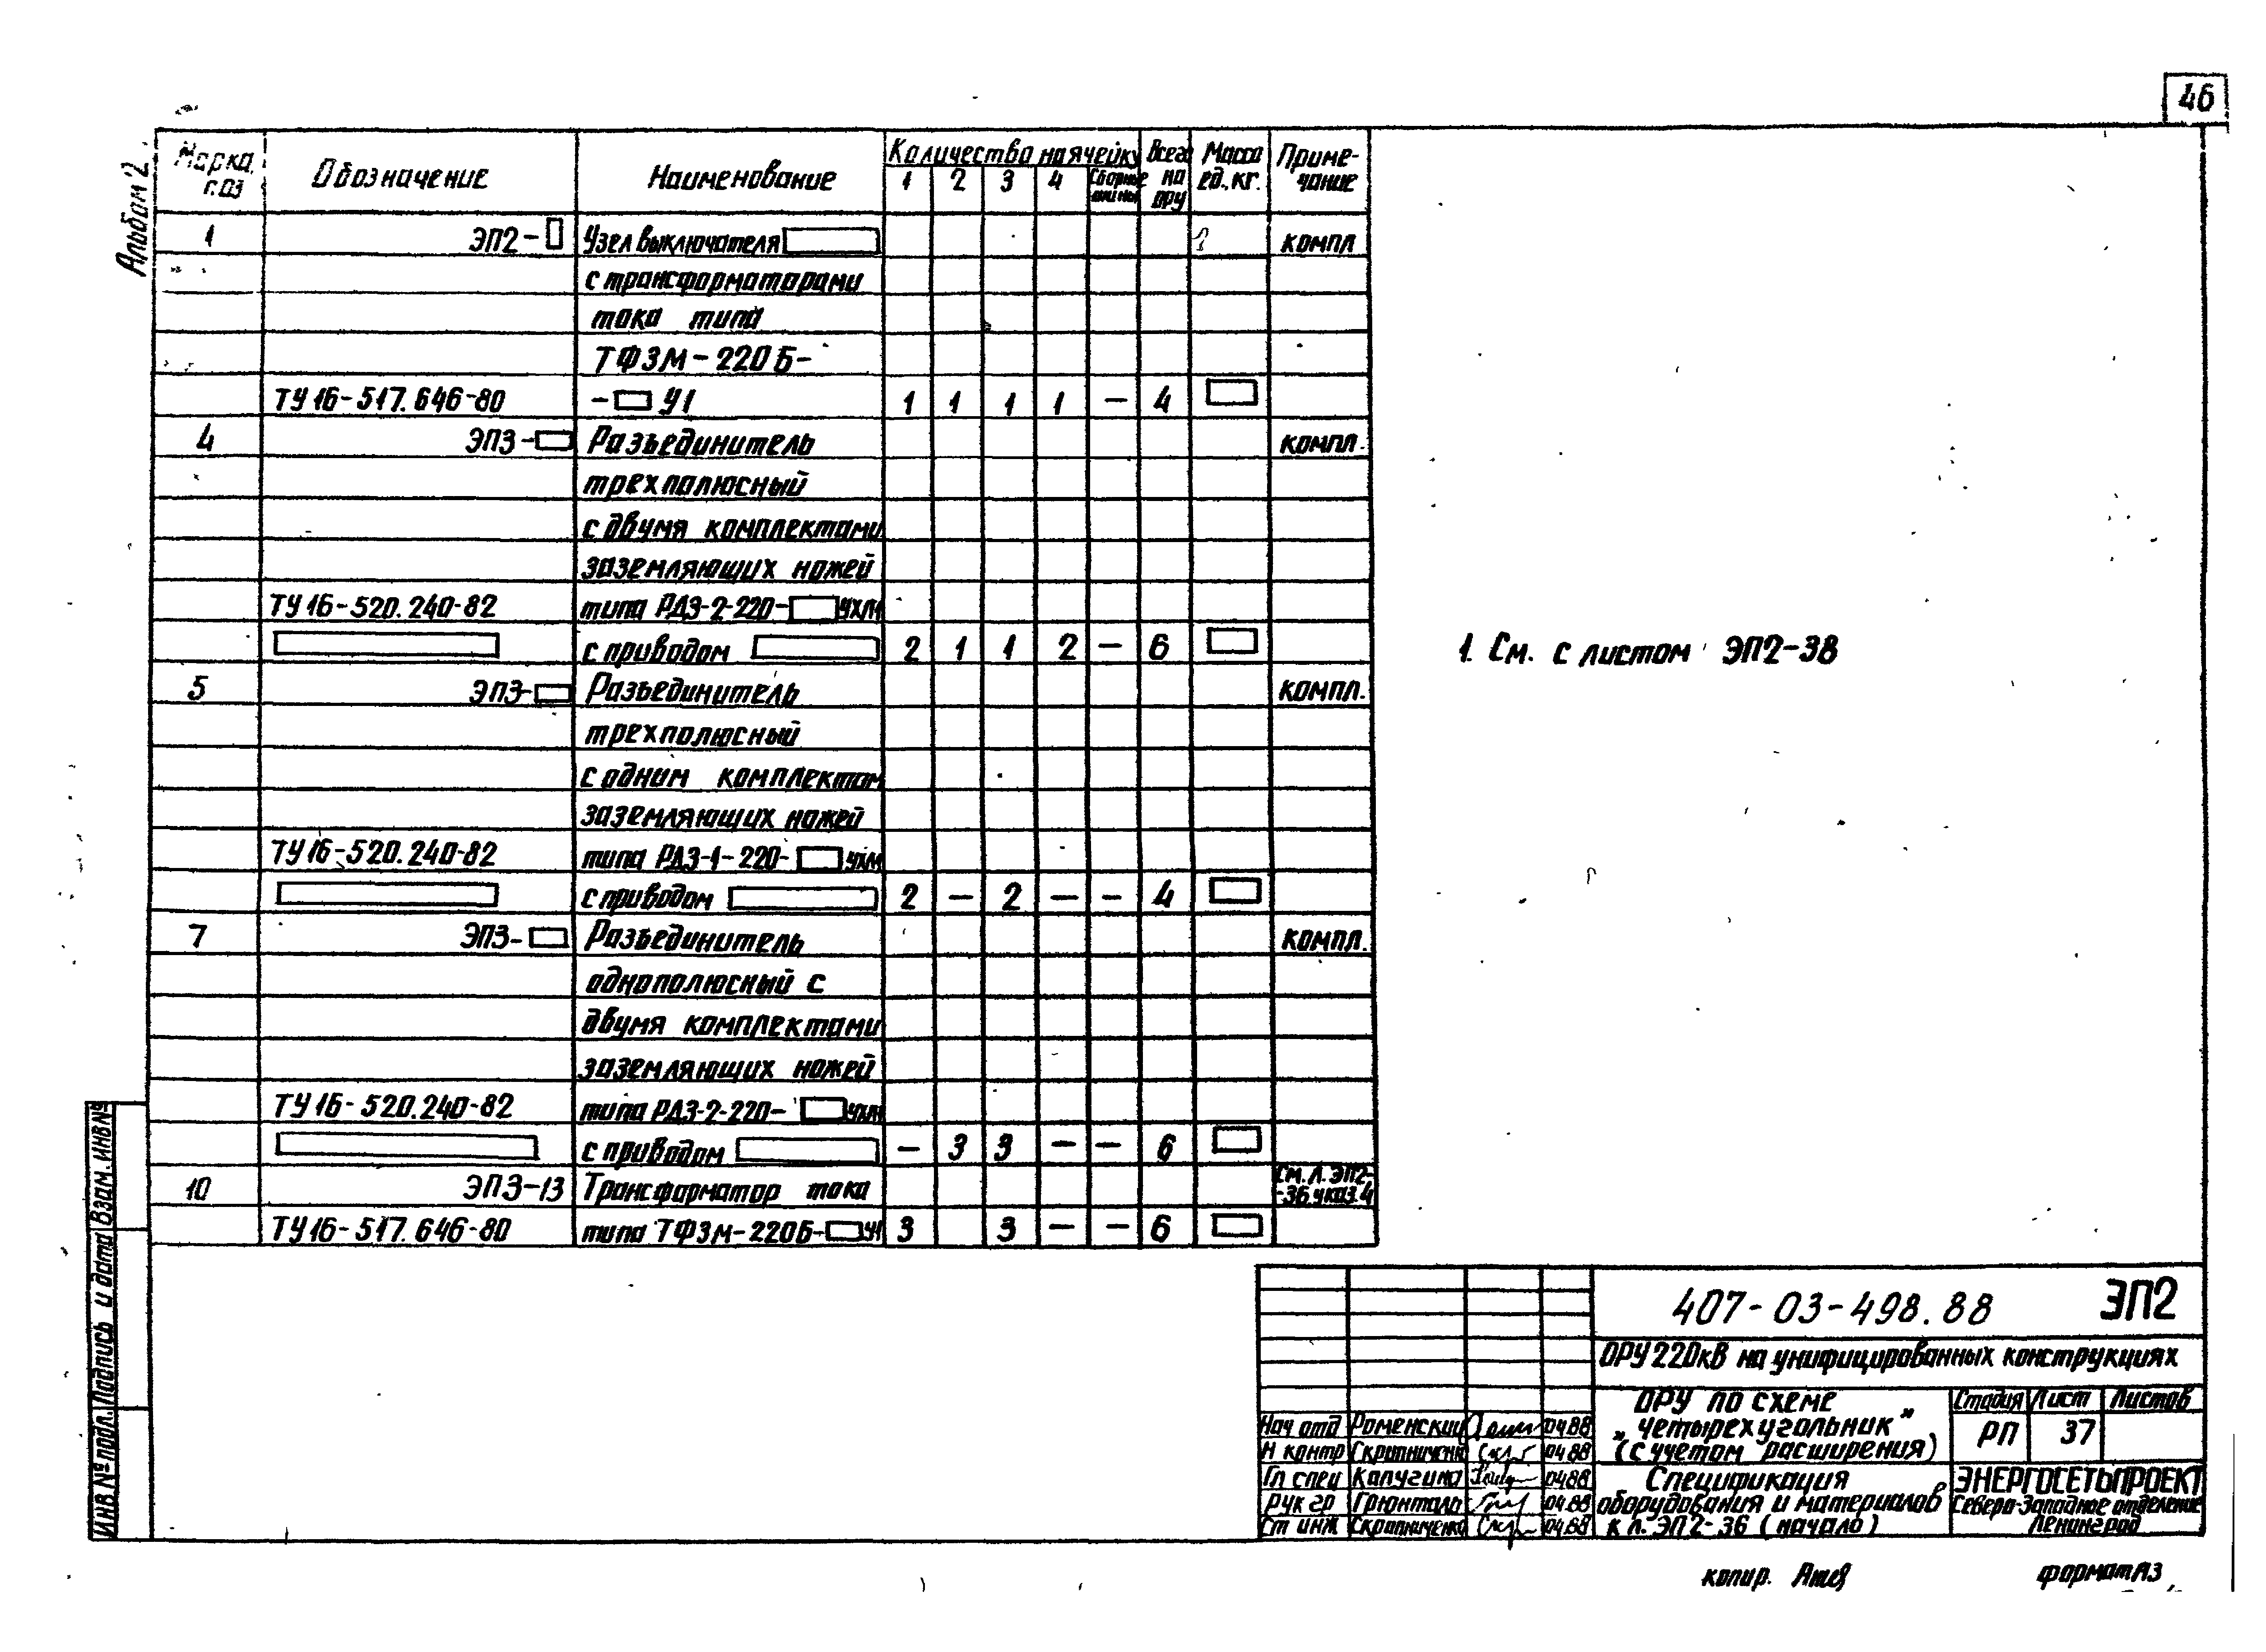 46
Альбом 2
Марка, поз
Обозначение
Наименование
Количество на ячейку
1 2 3 4 Сборные шины
Всего на ОРУ
Масса ед., кг.
Приме-
чание
1 ЭП2- Узел выключателя компл
с трансформаторами
тока типа
ТФЗМ-220Б-
ТУ16-517.646-80 - У1 1 1 1 1 — 4
4 ЭП3- Разъединитель компл.
трехполюсный
с двумя комплектами
заземляющих ножей
ТУ16-520.240-82 типа РДЗ-2-220- УХЛ1
с приводом 2 1 1 2 — 6
5 ЭП3- Разъединитель компл.
трехполюсный
с одним комплектом
заземляющих ножей
ТУ16-520.240-82 типа РДЗ-1-220- УХЛ1
с приводом 2 — 2 — — 4
7 ЭП3- Разъединитель компл.
однополюсный с
двумя комплектами
заземляющих ножей
ТУ16-520.240-82 типа РДЗ-2-220- УХЛ1
с приводом — 3 3 — — 6
10 ЭП3-13 Трансформатор тока См. л. ЭП2-
-36 указ. 4
ТУ16-517.646-80 типа ТФЗМ-220Б- У1 3 3 — — 6
1. См. с листом ЭП2-38
Инв № подл. Подпись и дата Взам. инв №
407-03-498.88 ЭП2
ОРУ 220кВ на унифицированных конструкциях
ОРУ по схеме
„четырехугольник”
(с учетом расширения)
Стадия Лист Листов
РП 37
Нач отд Роменский 04.88
Н контр Скрипниченко 04.88
Гл спец Калугина 04.88
Рук гр Грюнталь 04.88
Ст инж Скрипниченко 04.88
Спецификация
оборудования и материалов
к л. ЭП2-36 (начало)
ЭНЕРГОСЕТЬПРОЕКТ
Северо-Западное отделение
Ленинград
копир.
формат А3